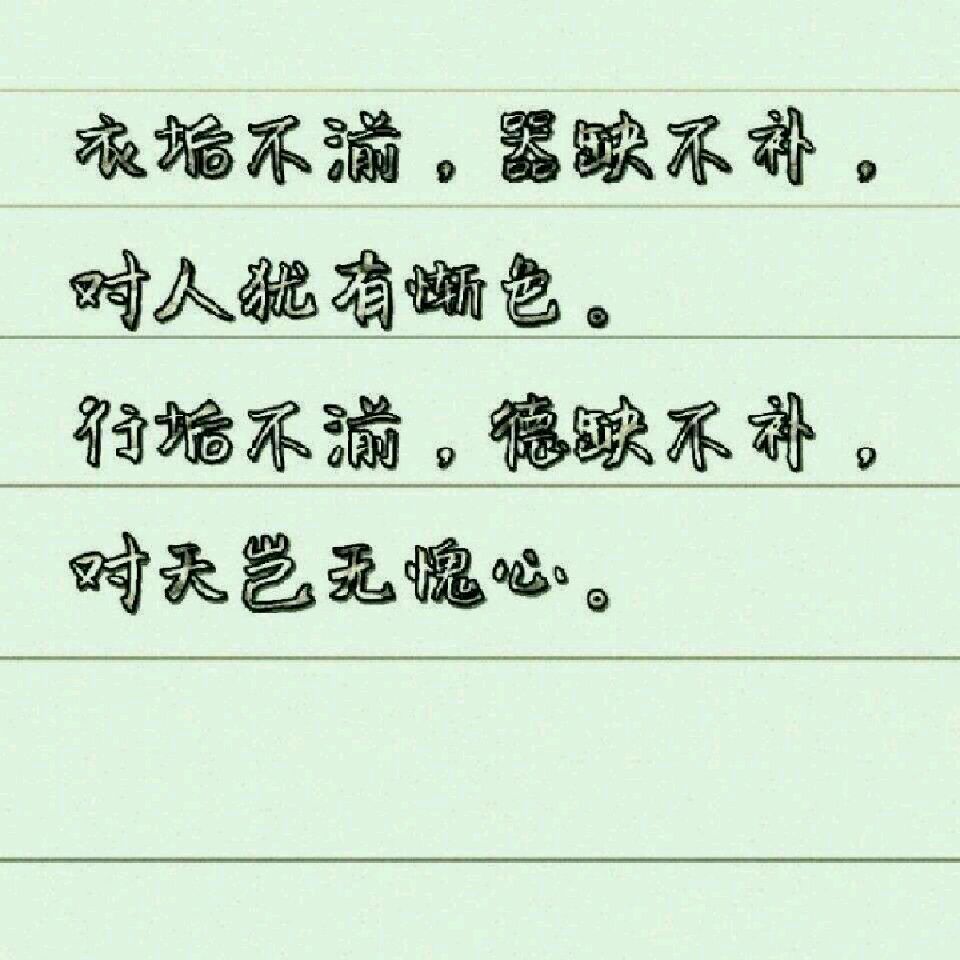 衣垢不湔，器缺不补，
对人犹有惭色。
行垢不湔，德缺不补，
对天岂无愧心。